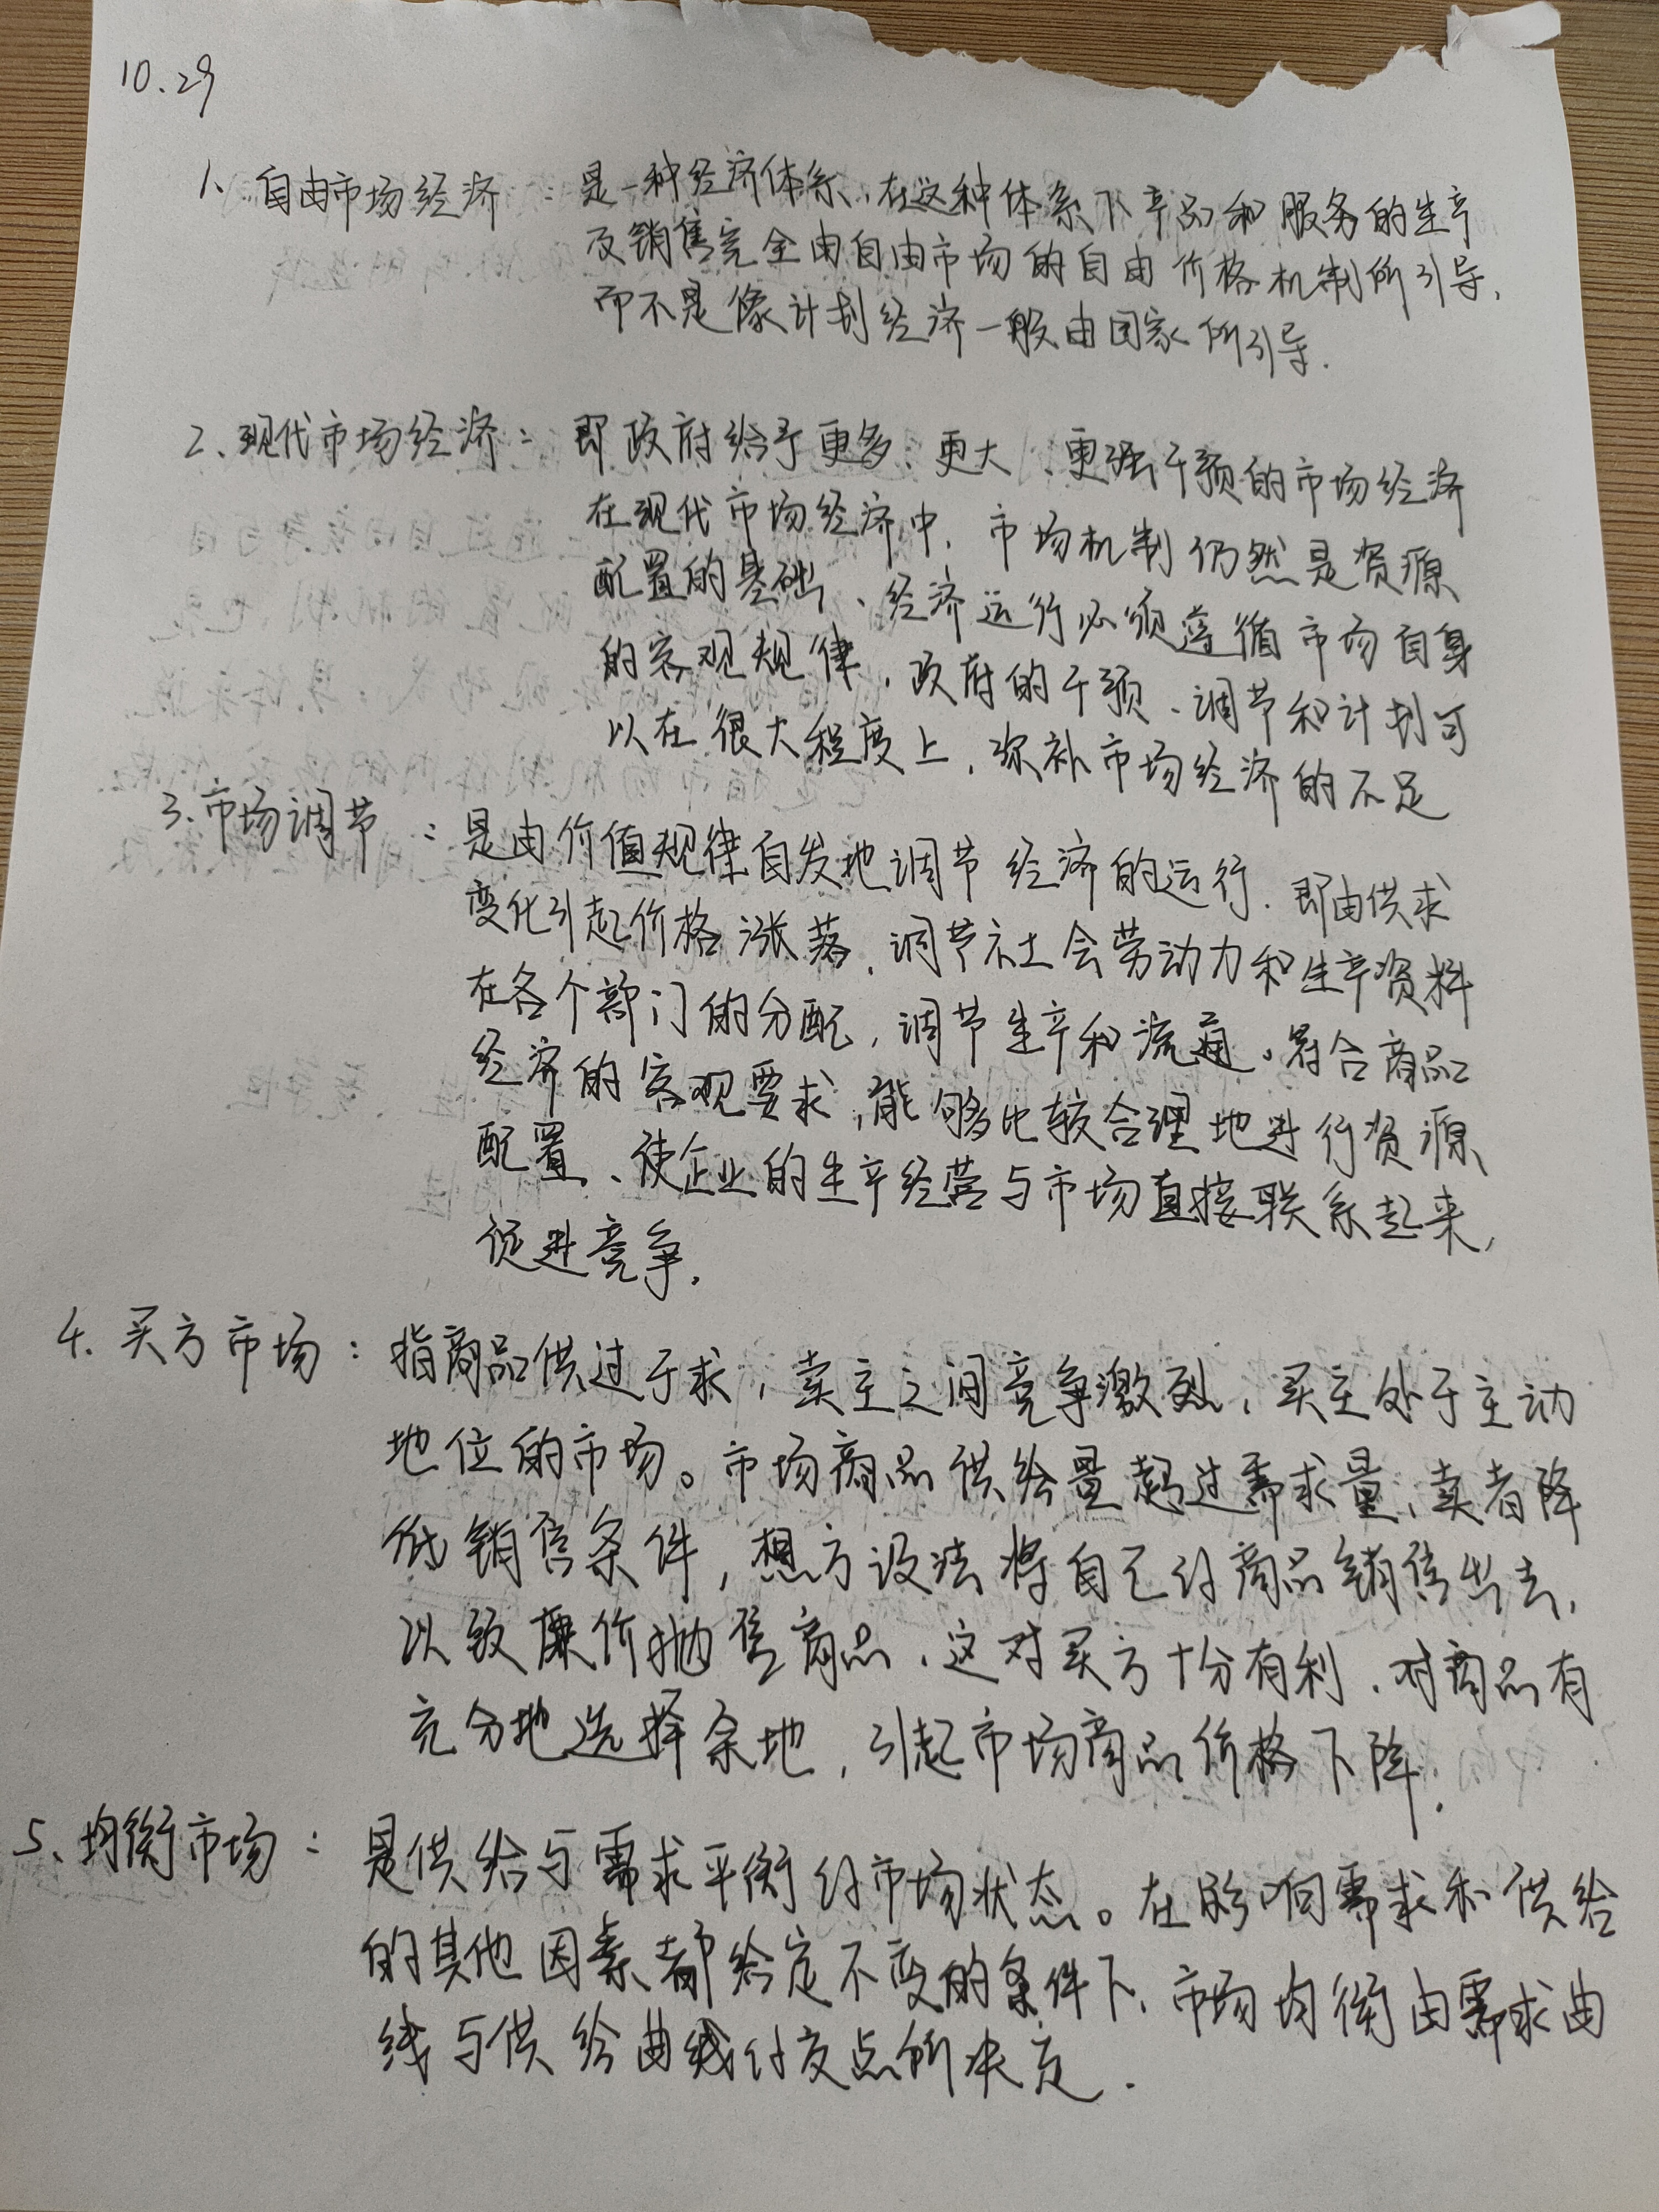 10.29
1、自由市场经济：是一种经济体系，在这种体系下产品和服务的生产
及销售完全由自由市场的自由价格机制所引导，
而不是像计划经济一般由国家所引导.
2、现代市场经济：即政府给予更多、更大、更强干预的市场经济
在现代市场经济中，市场机制仍然是资源
配置的基础、经济运行必须遵循市场自身
的客观规律，政府的干预、调节和计划可
以在很大程度上，弥补市场经济的不足
3.市场调节：是由价值规律自发地调节经济的运行.即由供求
变化引起价格涨落，调节社会劳动力和生产资料
在各个部门的分配，调节生产和流通。符合商品
经济的客观要求，能够比较合理地进行资源
配置、使企业的生产经营与市场直接联系起来，
促进竞争.
4.买方市场：指商品供过于求，卖主之间竞争激烈，买主处于主动
地位的市场。市场商品供给量超过需求量，卖者降
低销售条件，想方设法将自己的商品销售出去，
以致廉价抛售商品，这对买方十分有利，对商品有
充分地选择余地，引起市场商品价格下降.
5、均衡市场：是供给与需求平衡的市场状态。在影响需求和供给
的其他因素都给定不变的条件下，市场均衡由需求曲
线与供给曲线的交点所决定.